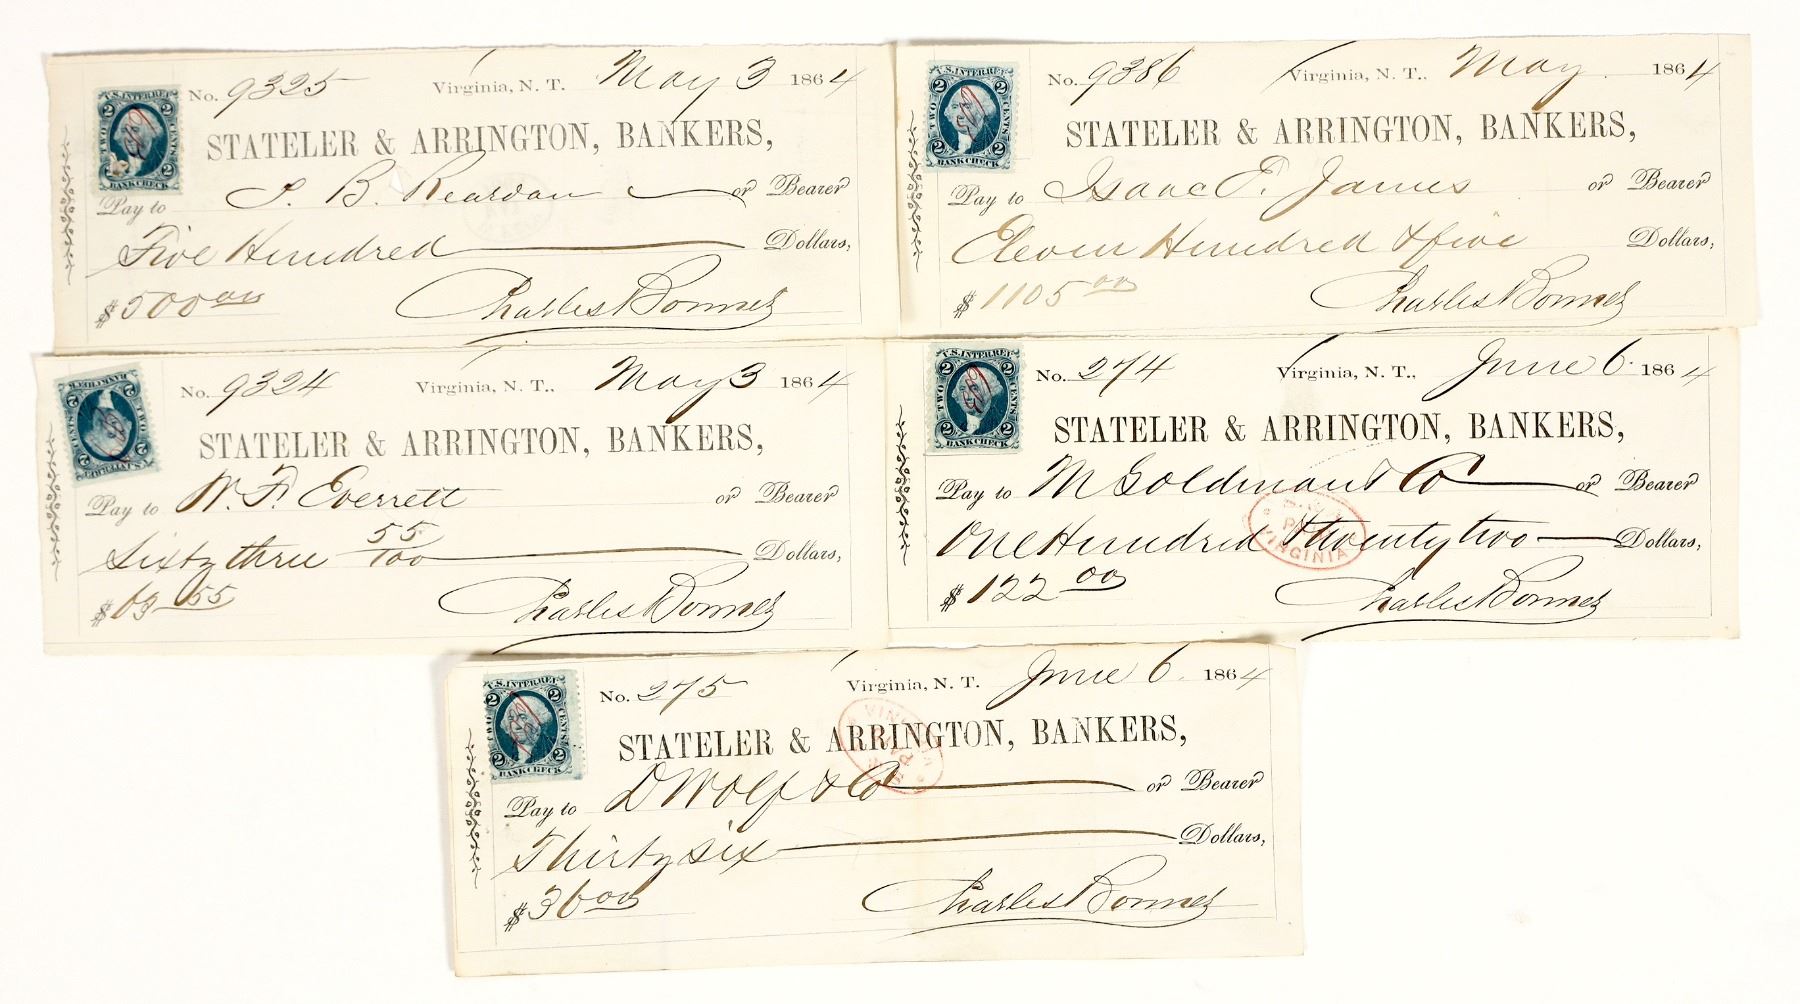 U.S. INTER. REV.
2 2
TWO CENTS
2 2
BANK CHECK
No. 9325 Virginia, N. T. May 3 1864
STATELER & ARRINGTON, BANKERS,
Pay to B. Reardan or Bearer
Five Hundred Dollars,
$500 00
Charles Bonner
U.S. INTER. REV.
2 2
TWO CENTS
2 2
BANK CHECK
No. 9386 Virginia, N. T., May 1864
STATELER & ARRINGTON, BANKERS,
Pay to Isaac E. James or Bearer
Eleven Hundred & five Dollars,
$1105 00
Charles Bonner
U.S. INTER. REV.
2 2
TWO CENTS
2 2
BANK CHECK
No. 9324 Virginia, N. T., May 3 1864
STATELER & ARRINGTON, BANKERS,
Pay to W. F. Everett or Bearer
Sixty three 55/100 Dollars,
$63 55
Charles Bonner
U.S. INTER. REV.
2 2
TWO CENTS
2 2
BANK CHECK
No. 274 Virginia, N. T., June 6 1864
STATELER & ARRINGTON, BANKERS,
Pay to M Goldman & Co or Bearer
One Hundred & twenty two Dollars,
VIRGINIA
$122 00
Charles Bonner
U.S. INTER. REV.
2 2
TWO CENTS
2 2
BANK CHECK
No. 275 Virginia, N. T. June 6. 1864
STATELER & ARRINGTON, BANKERS,
Pay to D Wolf & Co or Bearer
Thirty six Dollars,
$36 00
Charles Bonner